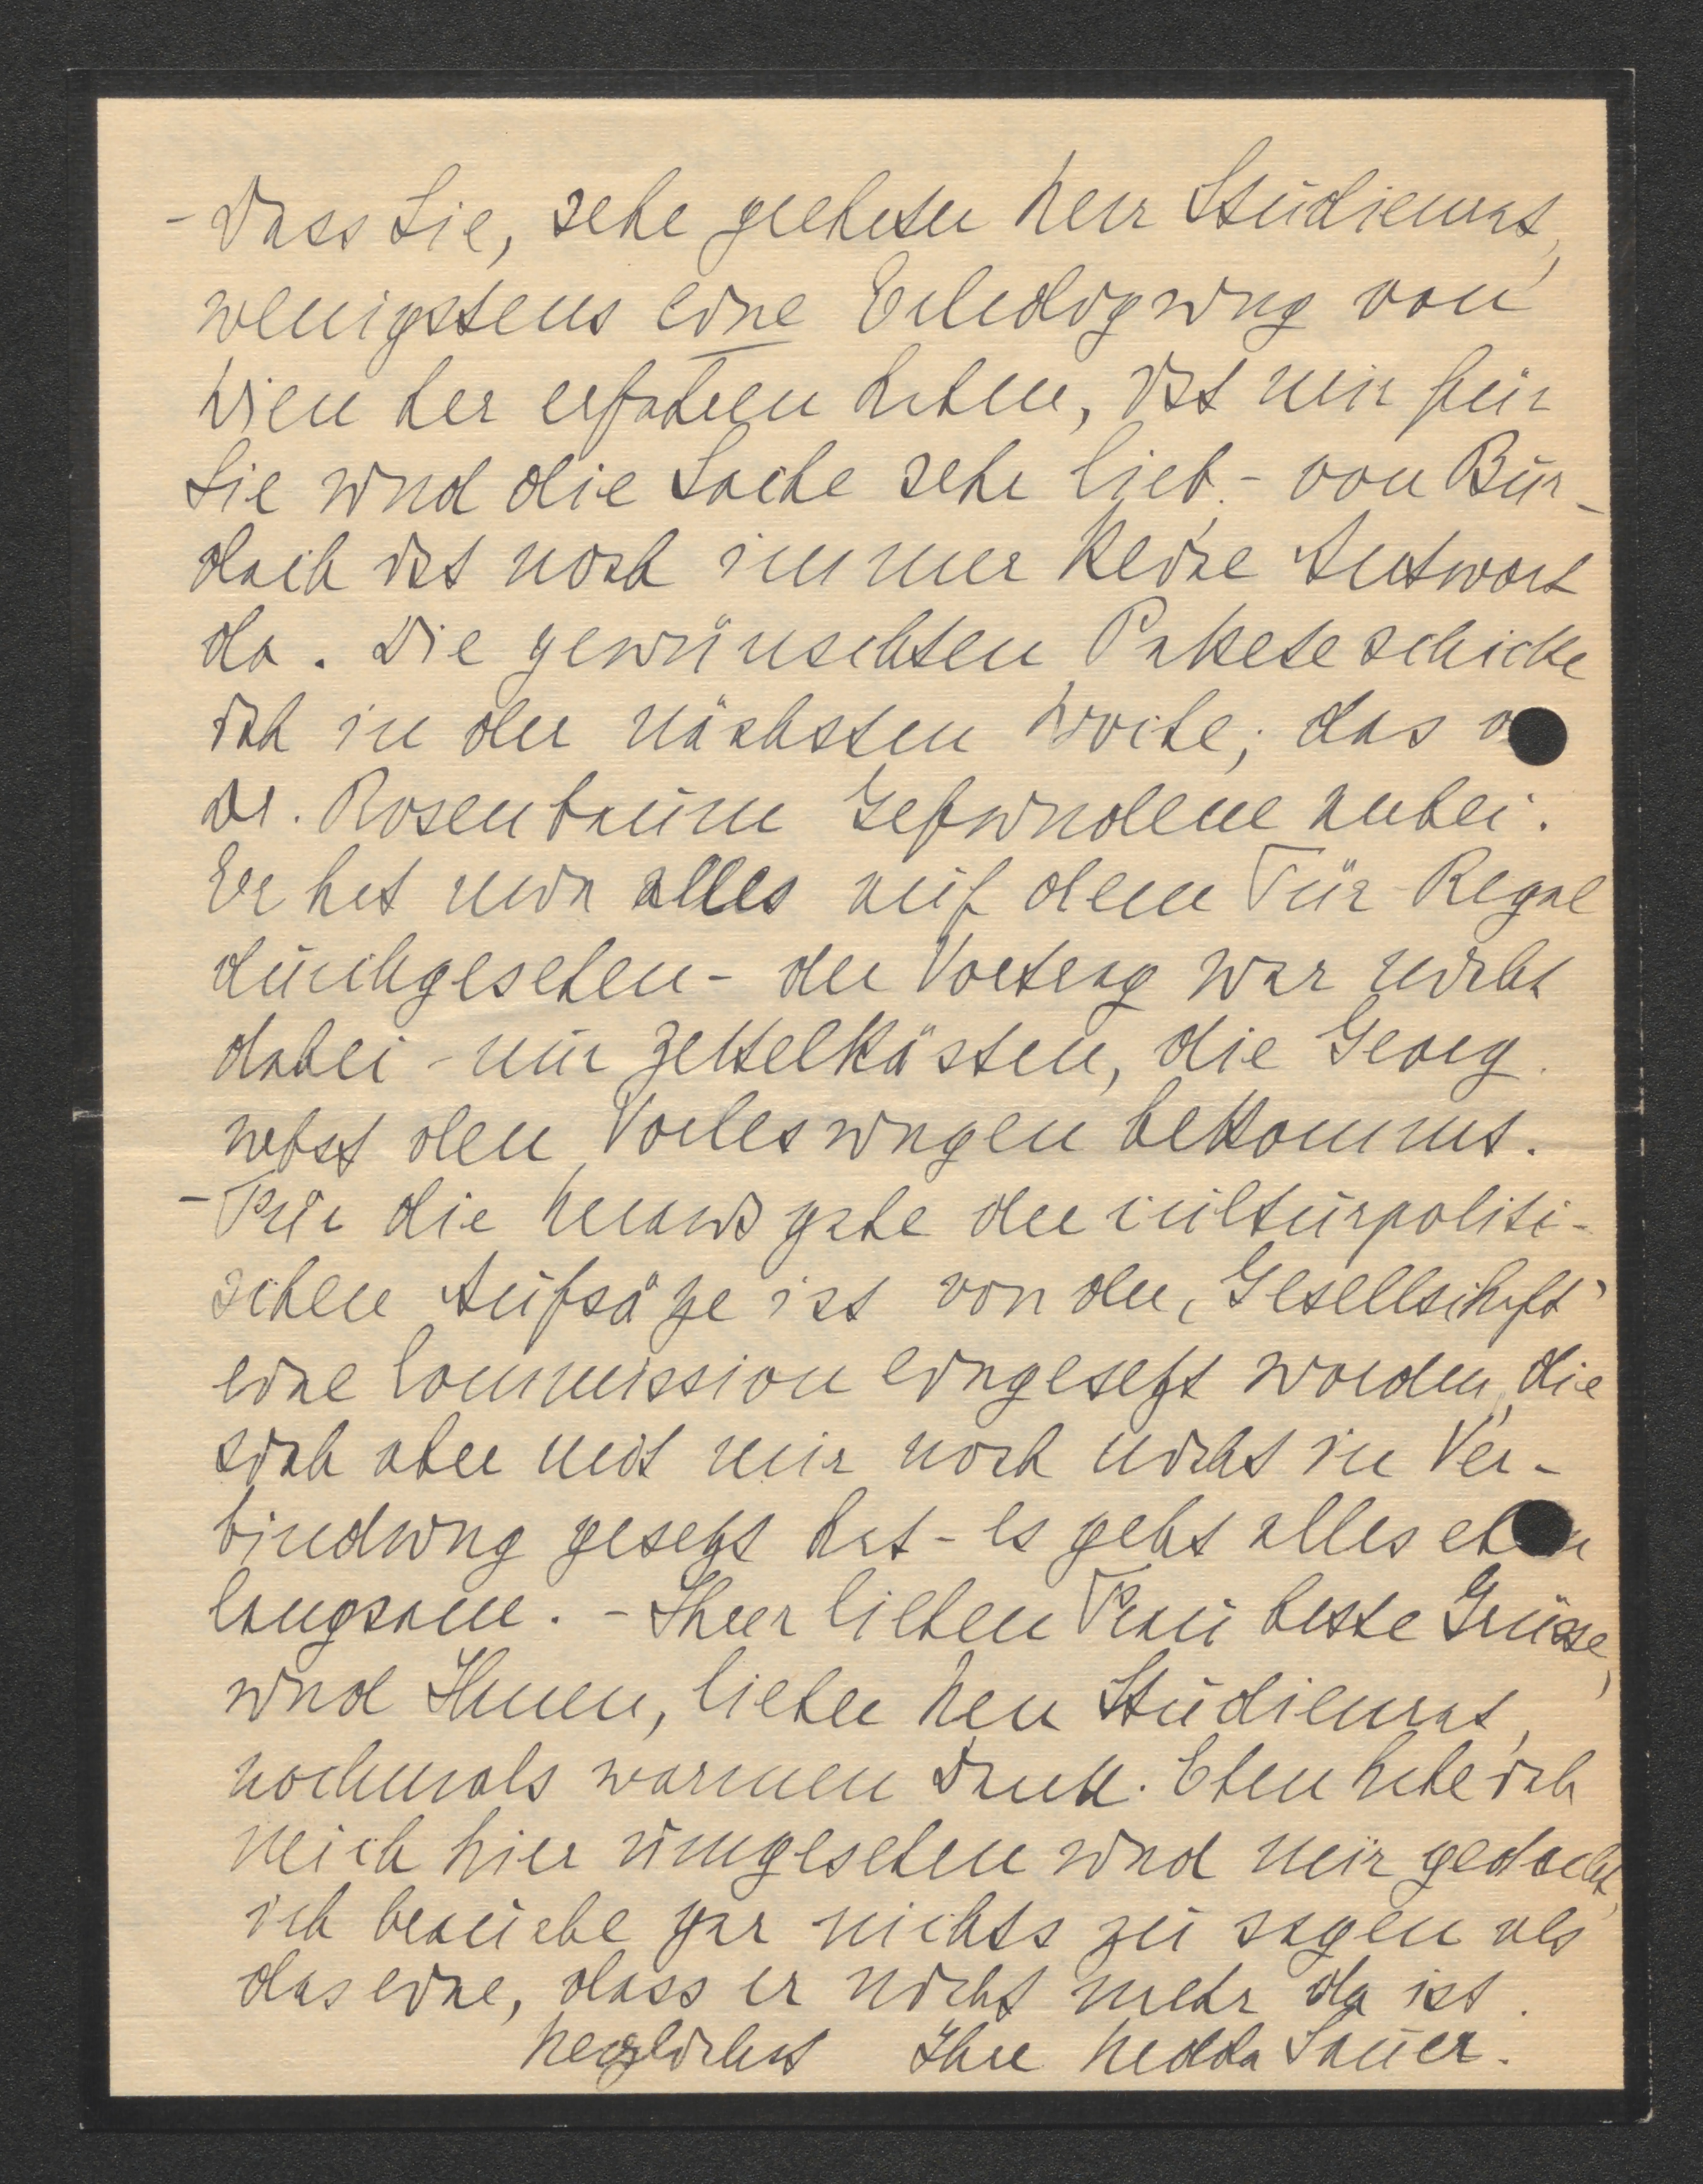 - Dass Sie, sehr geehrter Herr Studienrat,
wenigstens eine Erledigung von
Wien her erfahren haben, ist mir für
Sie und die Sache sehr lieb. - von Bur-
dach ist noch immer keine Antwort
da. Die gewünschten Pakete schicke
ich in der nächsten Woche; das v
Dr. Rosenbaum Gefundene anbei.
Er hat nun alles auf dem Tür-Regal
durchgesehen - der Vortrag war nicht
dabei - nur Zettelkästen, die Georg
nebst den Vorlesungen bekommt.
- Für die Herausgabe der culturpoliti-
schen Aufsäze ist von der „Gesellschaft“
eine Commission eingesetzt worden, die
sich aber mit mir noch nicht in Ver-
bindung gesetzt hat - es geht alles eben
langsam. - Ihrer lieben Frau beste Grüsse,
und Ihnen, lieber Herr Studienrat,
nochmals warmen Dank. Eben habe ich
mich hier umgesehen und mir gedacht,
ich brauche gar nichts zu sagen als
das eine, dass er nicht mehr da ist.
Herzlichst Ihre Hedda Sauer.